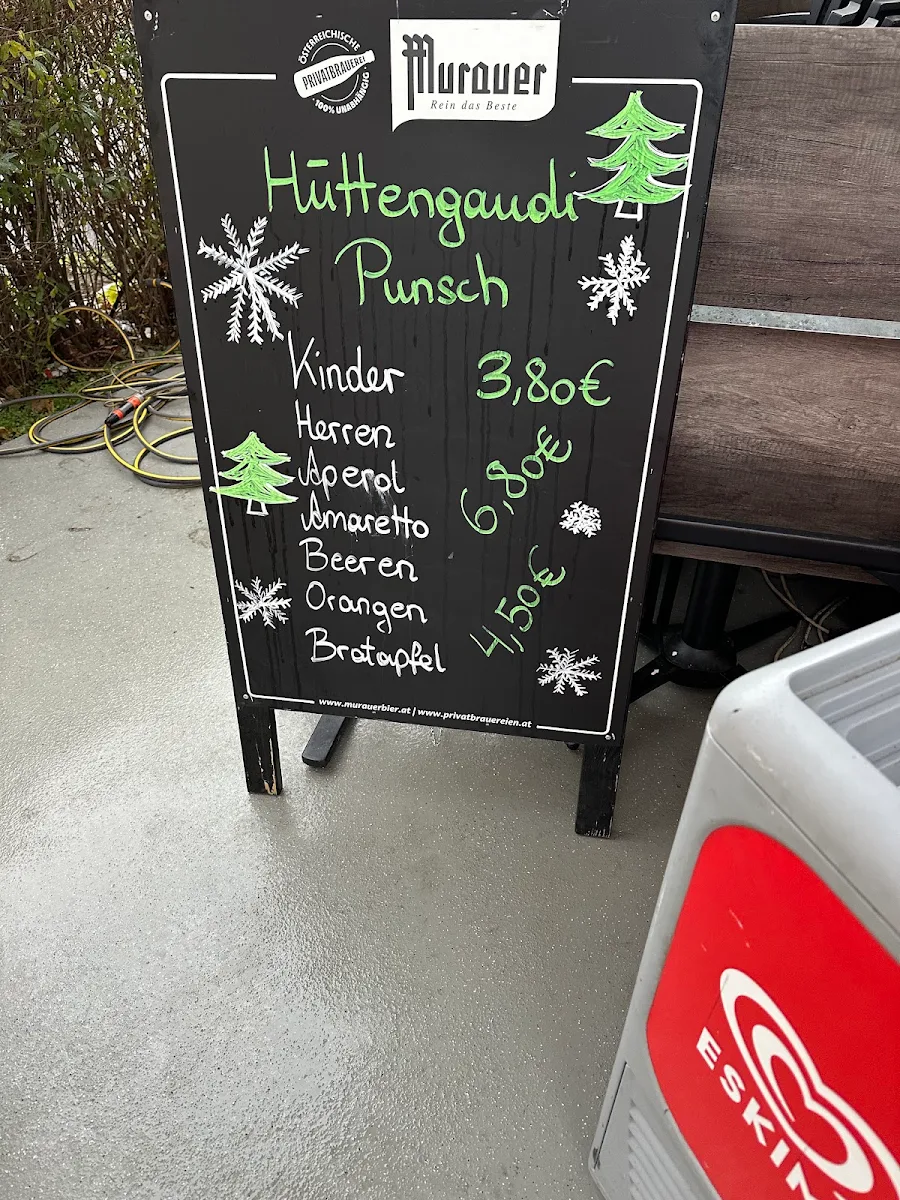 ÖSTERREICHISCHE
PRIVATBRAUEREI
100% UNABHÄNGIG
Murauer
Rein das Beste
Hüttengaudi
Punsch
Kinder 3,80€
Herren
Aperol 6,80€
Amaretto
Beeren
Orangen 4,50€
Bratapfel
www.murauerbier.at | www.privatbrauereien.at